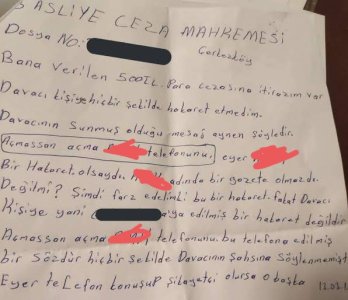 ASLİYE CEZA MAHKEMESİ
Dosya NO:
Çerkezköy
Bana verilen 500TL. Para cezasına itirazım var
Davacı kişiye hiçbir şekilde hakaret etmedim.
Davacının Sunmuş olduğu mesaj aynen şöyledir
Açmassan açma telefonunu, eyer
Bir Hakaret olsaydı adında bir gazete olmazdı.
Değilmi? Şimdi farz edelimki bu bir hakaret. fakat Davacı
Kişiye yani edilmiş bir hakaret değildir
Açmassan açma telefonunu. bu telefona edilmiş
bir Sözdür hiçbir şekilde Davacının Şahsına Söylenmemişt
Eyer telefon konuşup şikayetçi olursa o başka